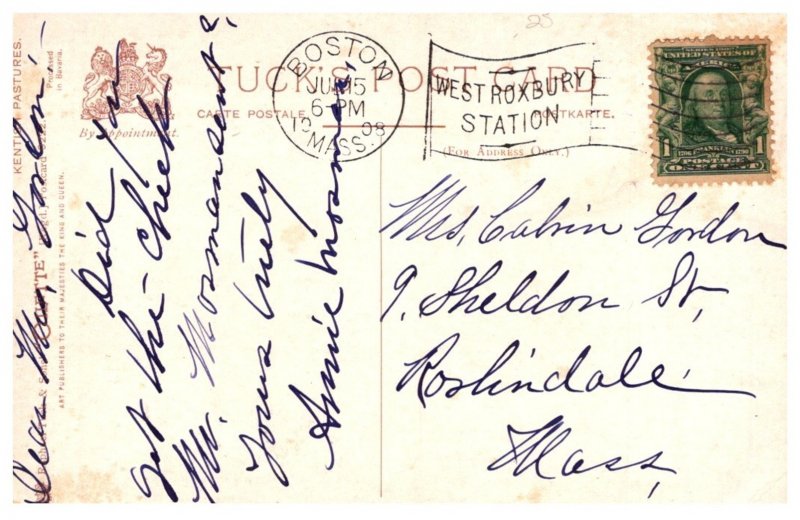 TUCK'S POST CARD
CARTE POSTALE
POSTKARTE.
(FOR ADDRESS ONLY.)
By Appointment.
BOSTON
JUN 15
6-PM
1908
MASS.
WEST ROXBURY
STATION
SERIES 1902
UNITED STATES OF
AMERICA
1706 FRANKLIN 1790
1 POSTAGE 1
ONE CENT
Mrs. Calvin Gordon
9. Sheldon St,
Roslindale
Mass,
Dear Mrs. Gordon:-
Did you
get the check
Mr. Mosman sent?
Yours truly
Annie Mosman,
KENTISH PASTURES.
Processed
in Bavaria.
"OILETTE"
ART PUBLISHERS TO THEIR MAJESTIES THE KING AND QUEEN.
25